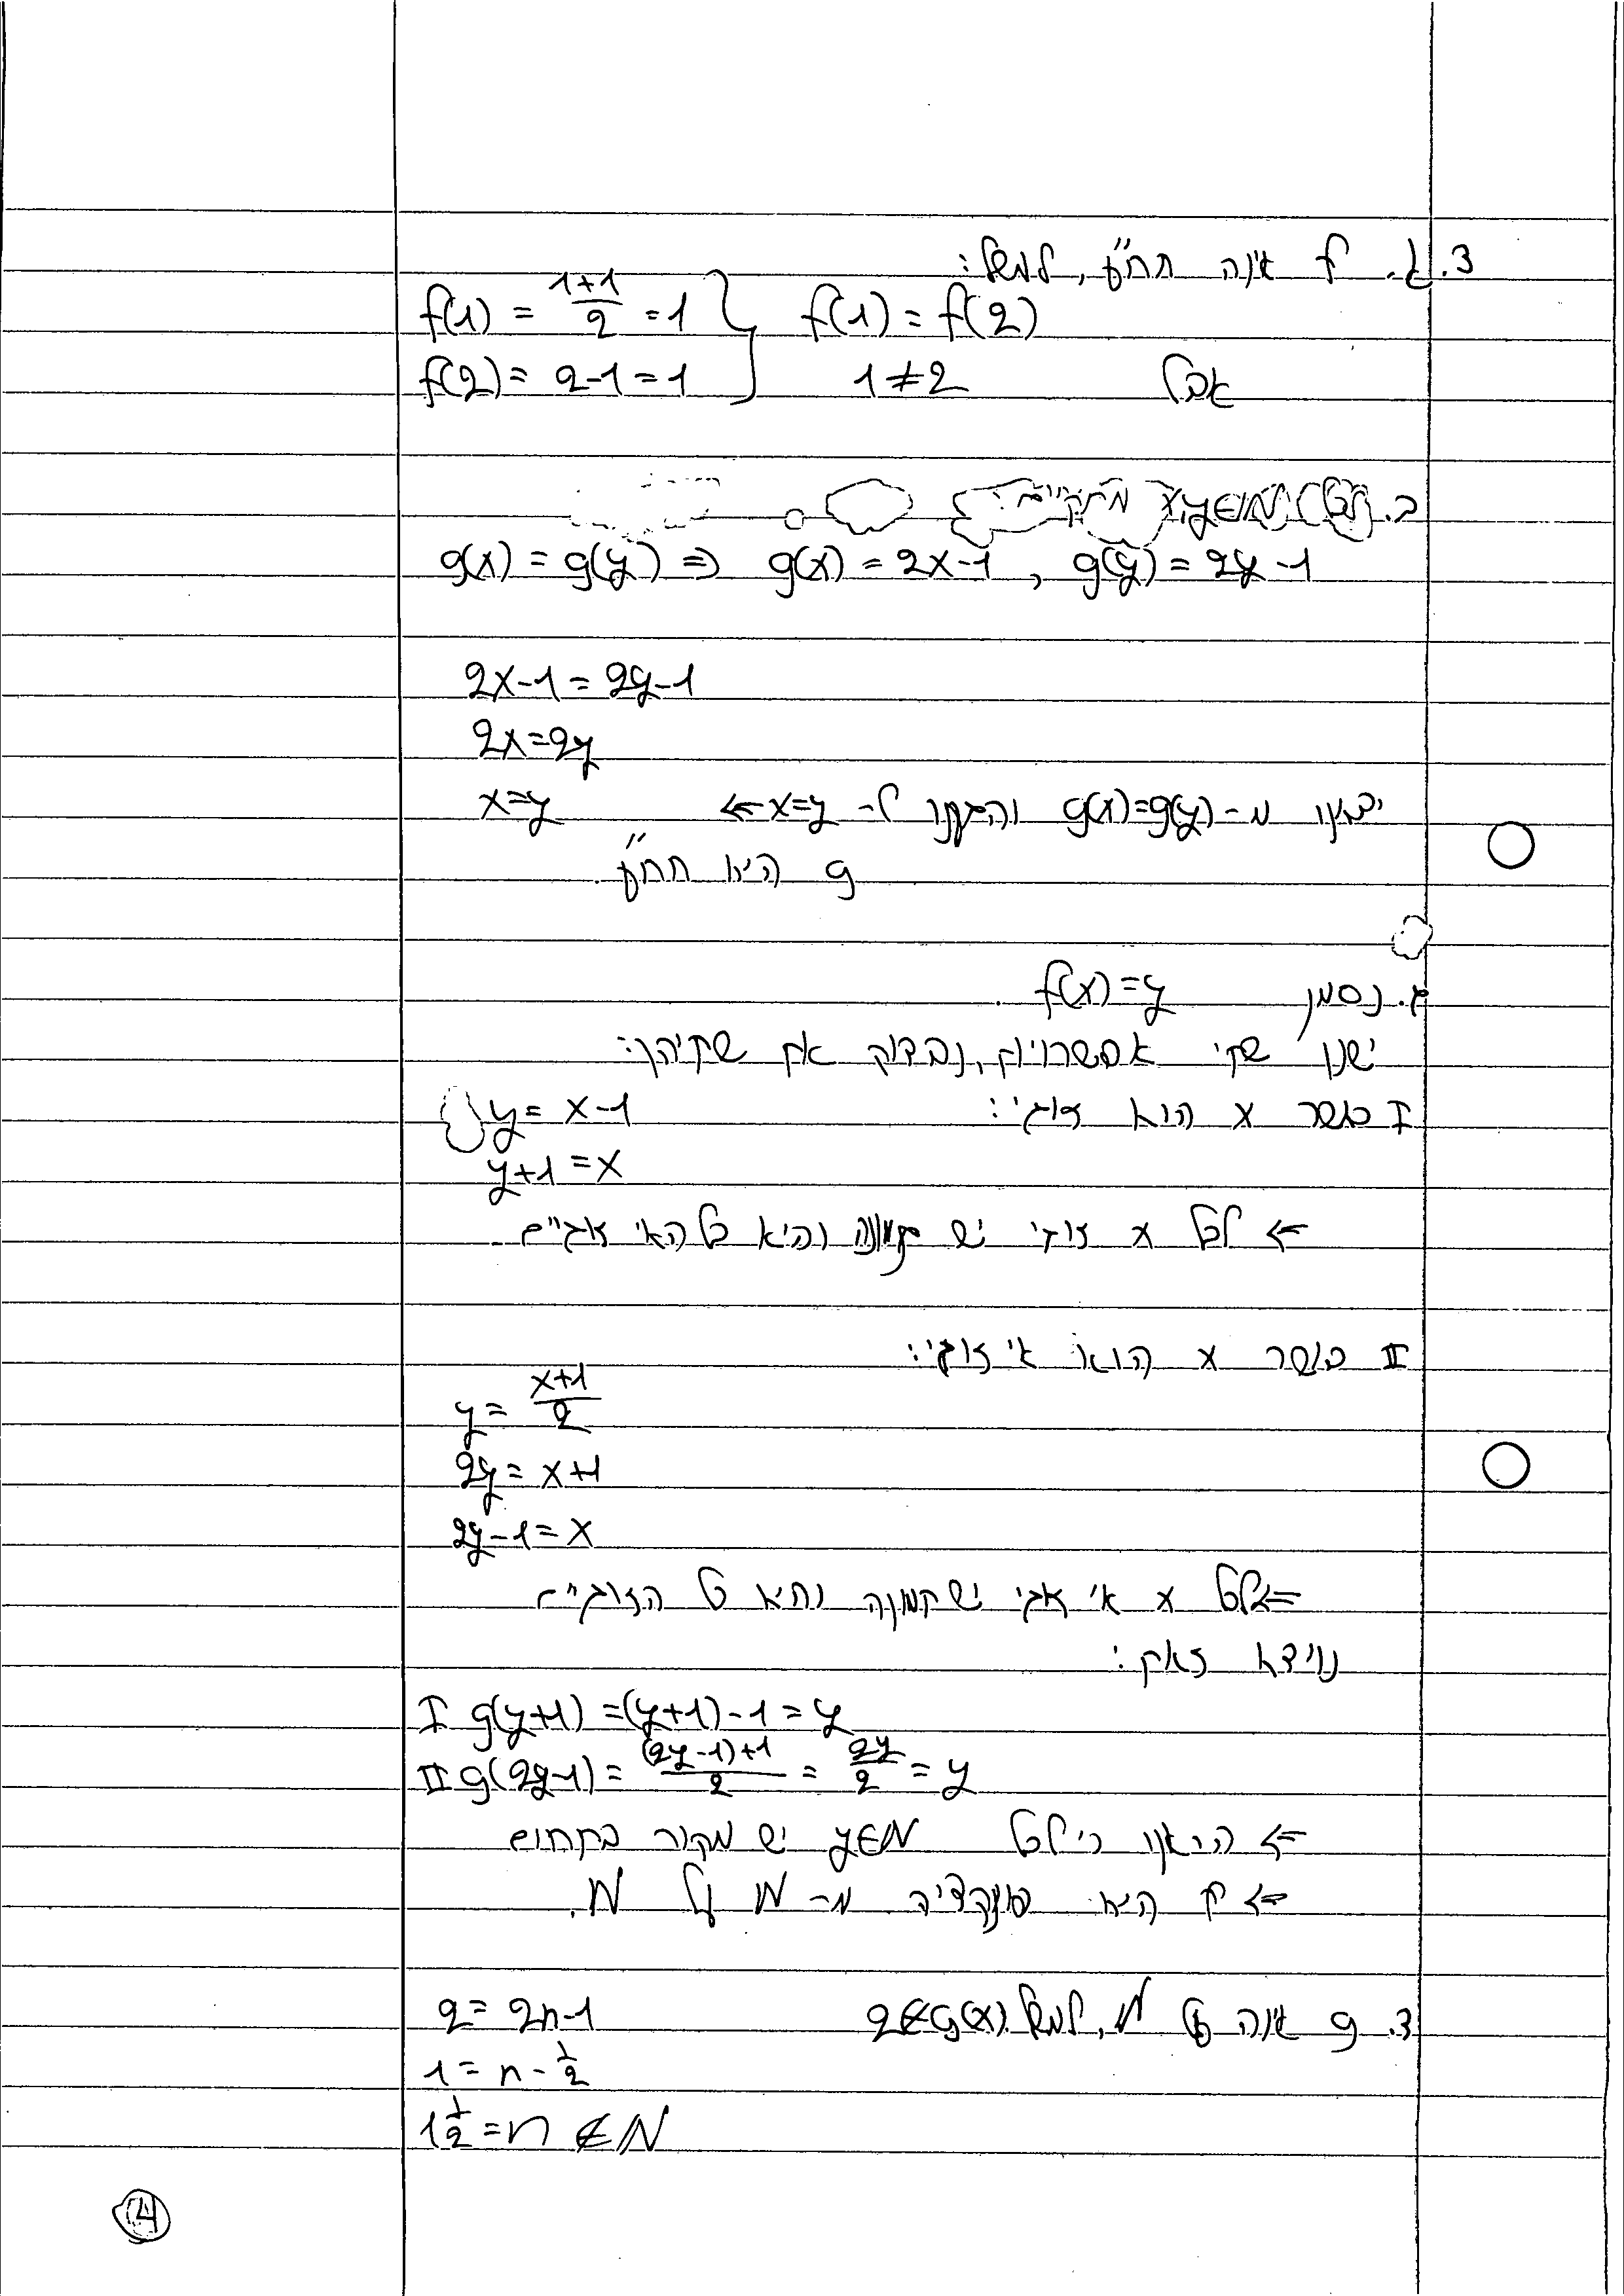 3. א. f אינה חח"ע, למשל:
f(1) = \frac{1+1}{2} = 1 } f(1) = f(2)
f(2) = 2-1 = 1 } אבל 1≠2
ב. לכל x,y∈N מתקיים:
g(x) = g(y) ⇒ g(x) = 2x-1 , g(y) = 2y-1
2x-1 = 2y-1
2x = 2y
x = y
יצאנו מ- g(x)=g(y) והגענו ל- x=y ⇐
g היא חח"ע.
ג. נסמן f(x)=y.
ישנן שתי אפשרויות, נבדוק את שתיהן:
I כאשר x הוא זוגי: y = x-1
y+1 = x
⇐ לכל x זוגי יש תמונה והיא כל האי זוגיים.
II כאשר x הוא אי זוגי:
y = \frac{x+1}{2}
2y = x+1
2y-1 = x
⇐ לכל x אי זוגי יש תמונה והיא כל הזוגיים
נוודא זאת:
I g(y+1) = (y+1)-1 = y
II g(2y-1) = \frac{(2y-1)+1}{2} = \frac{2y}{2} = y
⇐ הראנו כי לכל y∈N יש מקור בתחום
⇐ f היא פונקציה מ- N על N.
ד. g אינה על N, למשל 2∉g(x). 2 = 2n-1
1 = n-\frac{1}{2}
1\frac{1}{2} = n ∉ N
4